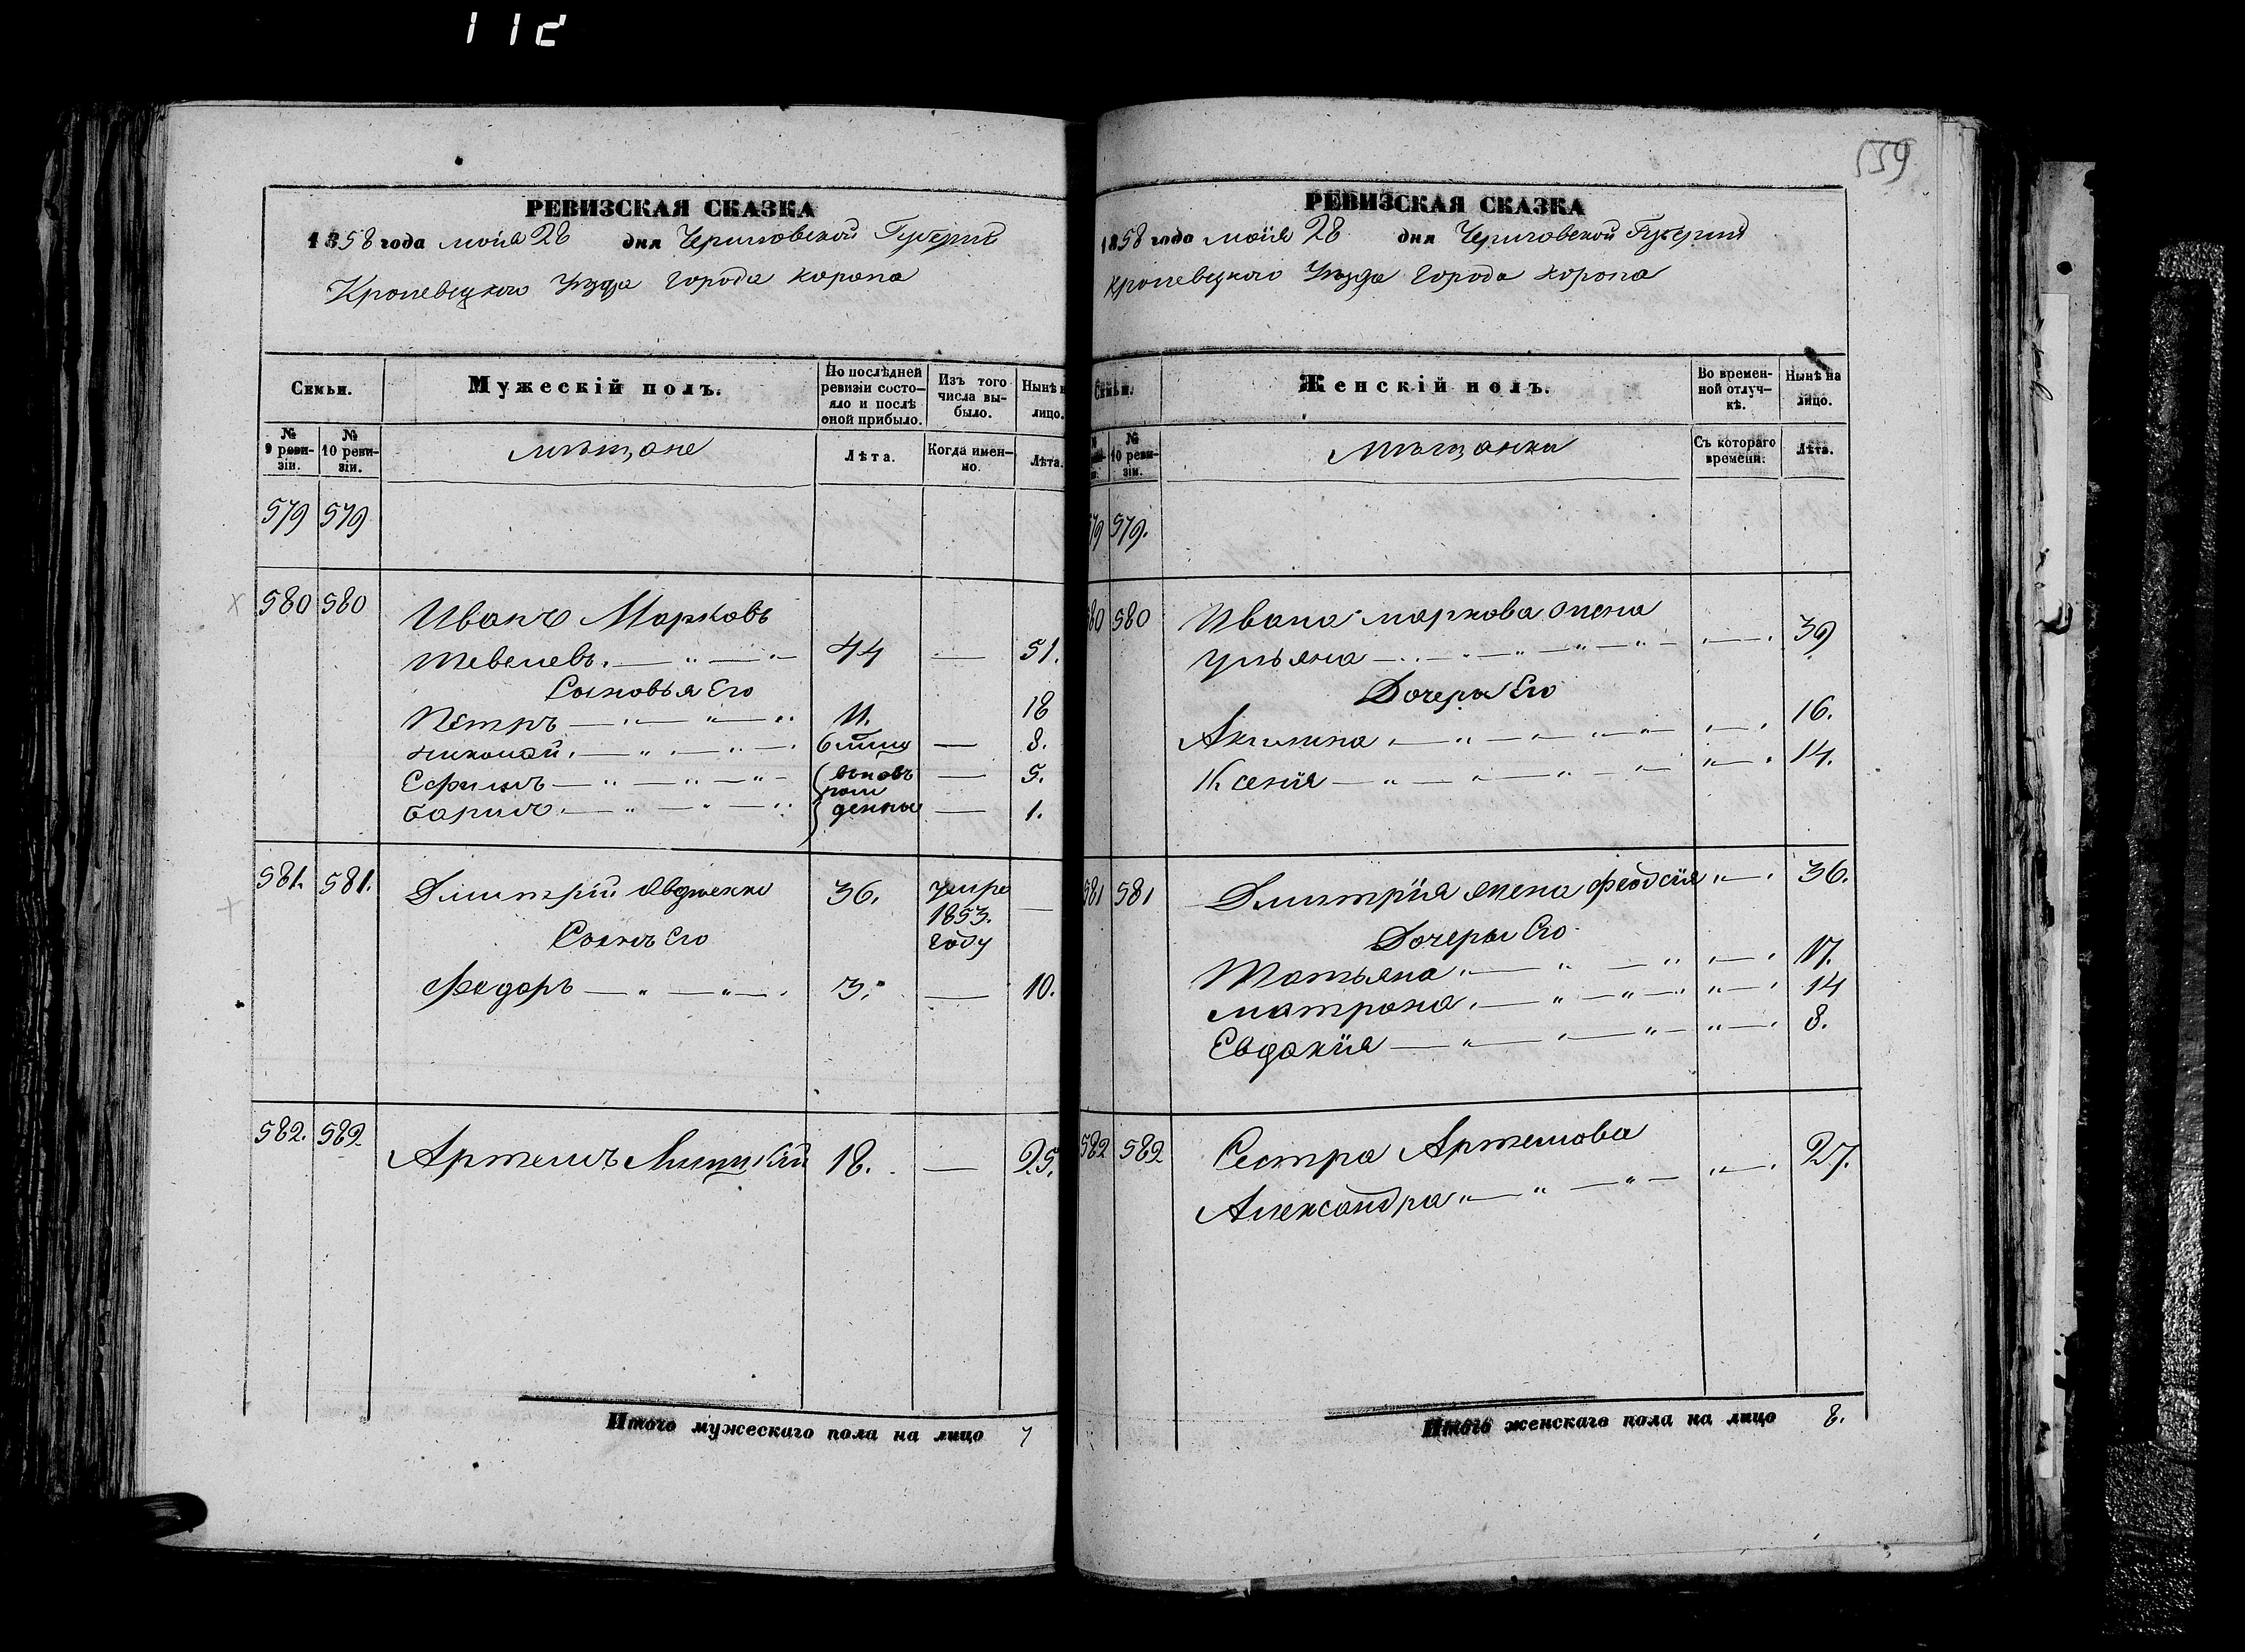 112
РЕВИЗСКАЯ СКАЗКА
1858 года моія 28 дня Черниговской Губерніи
Кролевецкого Уѣзда города Коропа
Семьи.
Мужескій полъ.
По послѣдней ревизіи состо-
яло и послѣ
оной прибыло.
Изъ того
числа вы-
было.
Нынѣ н
лицо.
№
9 реви-
зіи.
№
10 реви-
зіи.
мѣщане
Лѣта.
Когда имен-
но.
Лѣта.
579 579
580 580 Иванъ Марковъ
Шевелевъ 44 — 51.
Сыновья Его
Петръ 11. 18
николай 6 — 8.
Ефимъ вновь — 5.
рож
Борисъ денны — 1.
581. 581. Дмитрій Явдненко 36. умре —
1853.
году
Сынъ Его
Федоръ 3. — 10.
582. 582 Артемъ 18. — 25.
Итого мужескаго пола на лицо 7
159
РЕВИЗСКАЯ СКАЗКА
1858 года маія 28 дня Черниговской Губерніи
Кролевецкого Уѣзда города Коропа
Семьи.
Женскій полъ.
Во времен-
ной отлуч-
кѣ.
Нынѣ на
лицо.
№
10 реви-
зіи.
мѣщанки
Съ котораго
времени.
Лѣта.
79 579.
80 580 Ивана маркова жена
Ульяна 39
Дочеры Его
Акилина 16.
Ксенія 14.
581 581 Дмитрія жена Феодсія 36.
Дочеры Его
Татьяна 17.
матрона 14
Евдокія 8.
582 582 Сестра Артемова
Александра 27.
Итого женскаго пола на лицо 8.